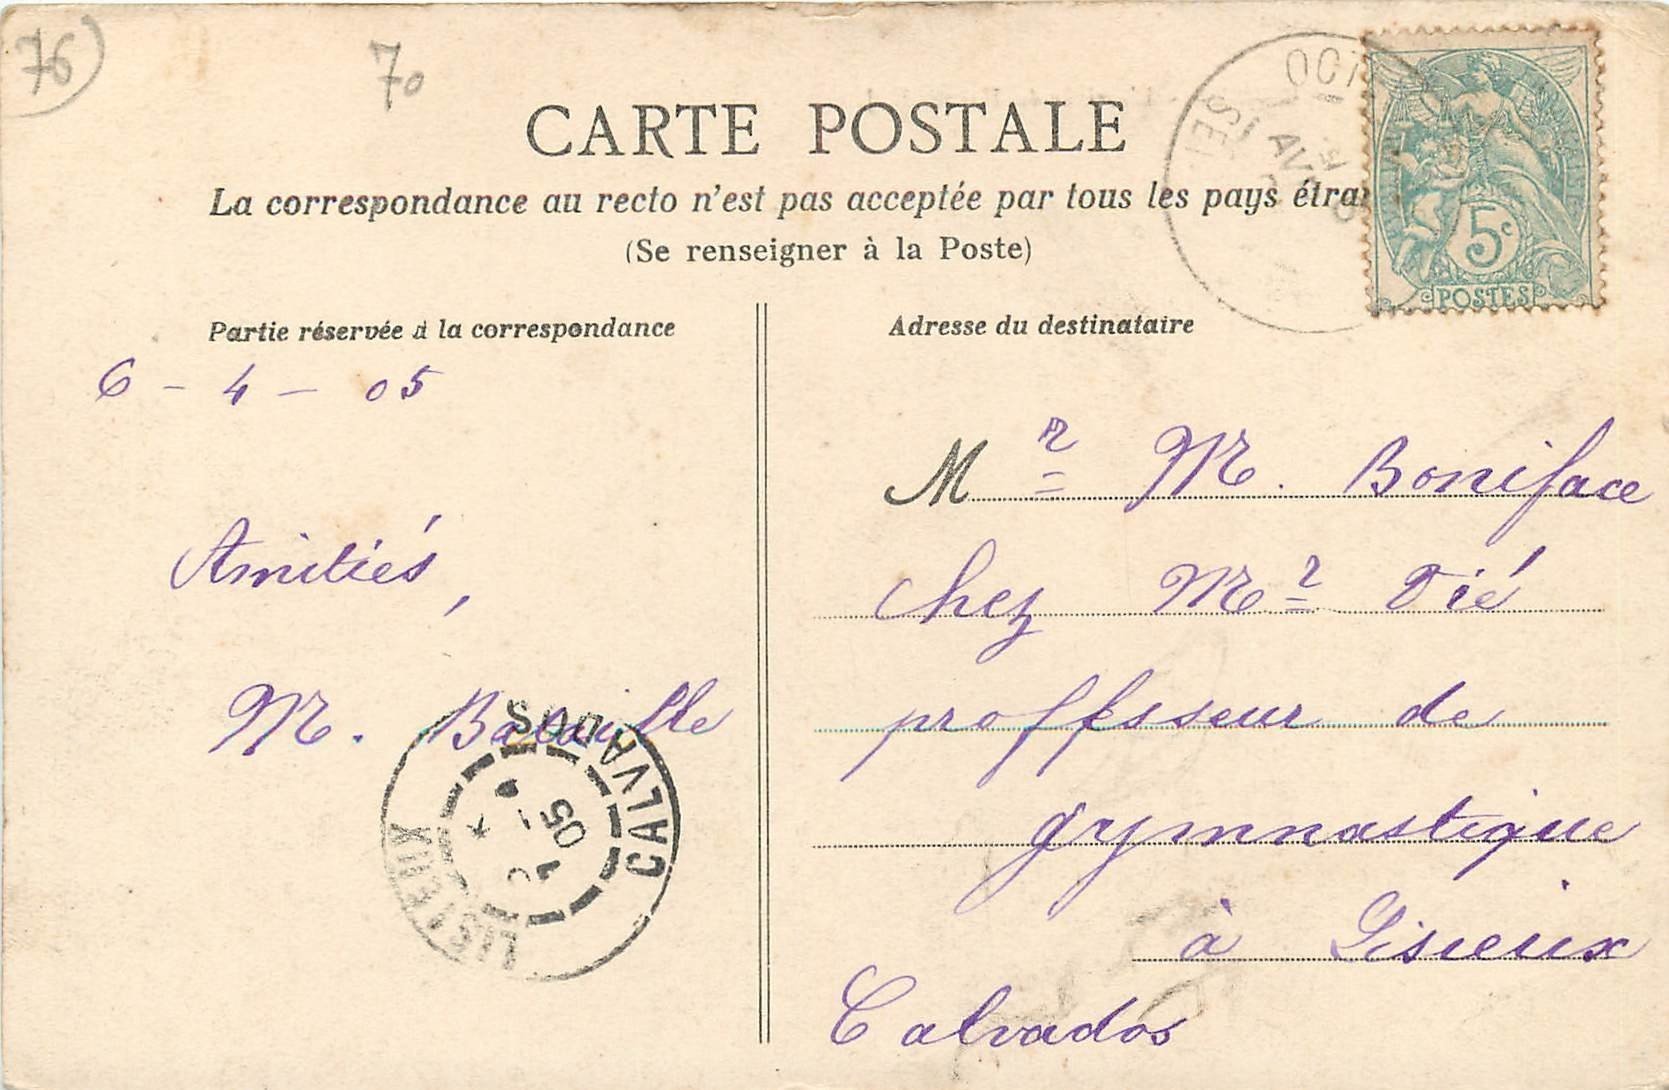 76
70
CARTE POSTALE
La correspondance au recto n'est pas acceptée par tous les pays étran
(Se renseigner à la Poste)
5c
POSTES
Partie réservée à la correspondance
Adresse du destinataire
6 - 4 - 05
Amitiés,
M. Bataille
LISIEUX
CALVADOS
05
Mr M. Boniface
chez Mr Vié
professeur de
gymnastique
à Lisieux
Calvados